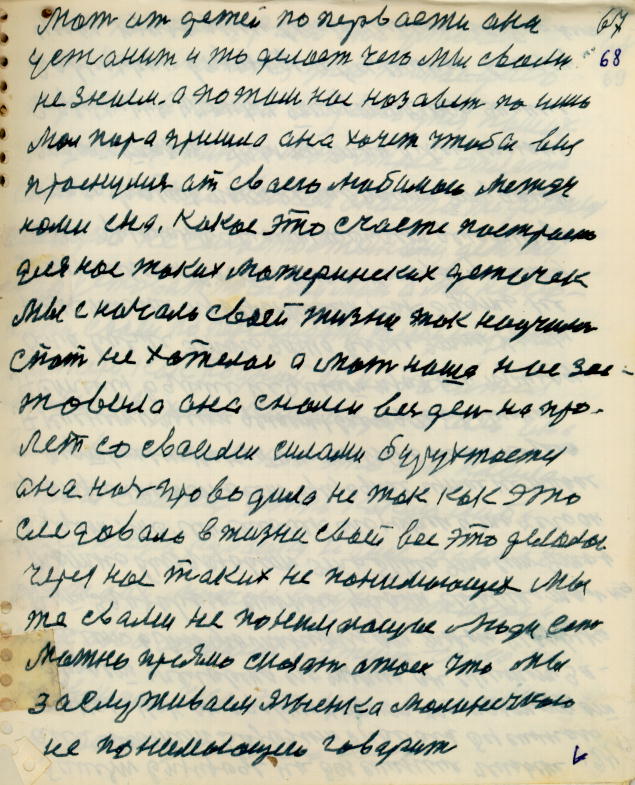 мат ат детей по первасти она 67
устанит и то делает чего мы свами 68
не знаем. а потом нас назавет по имю
мол пара пришла ана хочет чтобы вы
проснулись ат своего любимаго между
нами сна. Какое это счасте построено
для нас таких материнских деточек
Мы с начала своей жизни так научились
спат не хателос а мат наша нас зас-
товила ана снами вес ден на про-
лет со своими силами
ана нач проводила не так как это
следовало в жизни своей все это делалос
через нас таких не понимающих Мы
же свами не понимающие люди
Можно прямо сказат
заслуживаем язычка маличкаго
не понимающего говарит